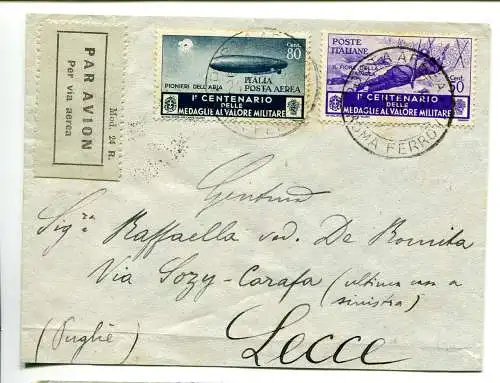 PAR AVION
Per via aerea
Mod. 24 R.
Cent. 80
PIONIERI DELL'ARIA
ITALIA
POSTA AEREA
I° CENTENARIO
DELLE
MEDAGLIE AL VALORE MILITARE
POSTE
ITALIANE
Cent. 50
I° CENTENARIO
DELLE
MEDAGLIE AL VALORE MILITARE
ROMA FERROV
Gent.ma
Sig.ra Raffaella ved. De Bonita
Via Sozy-Carafa (ultima casa a
sinistra)
(Puglie)
Lecce